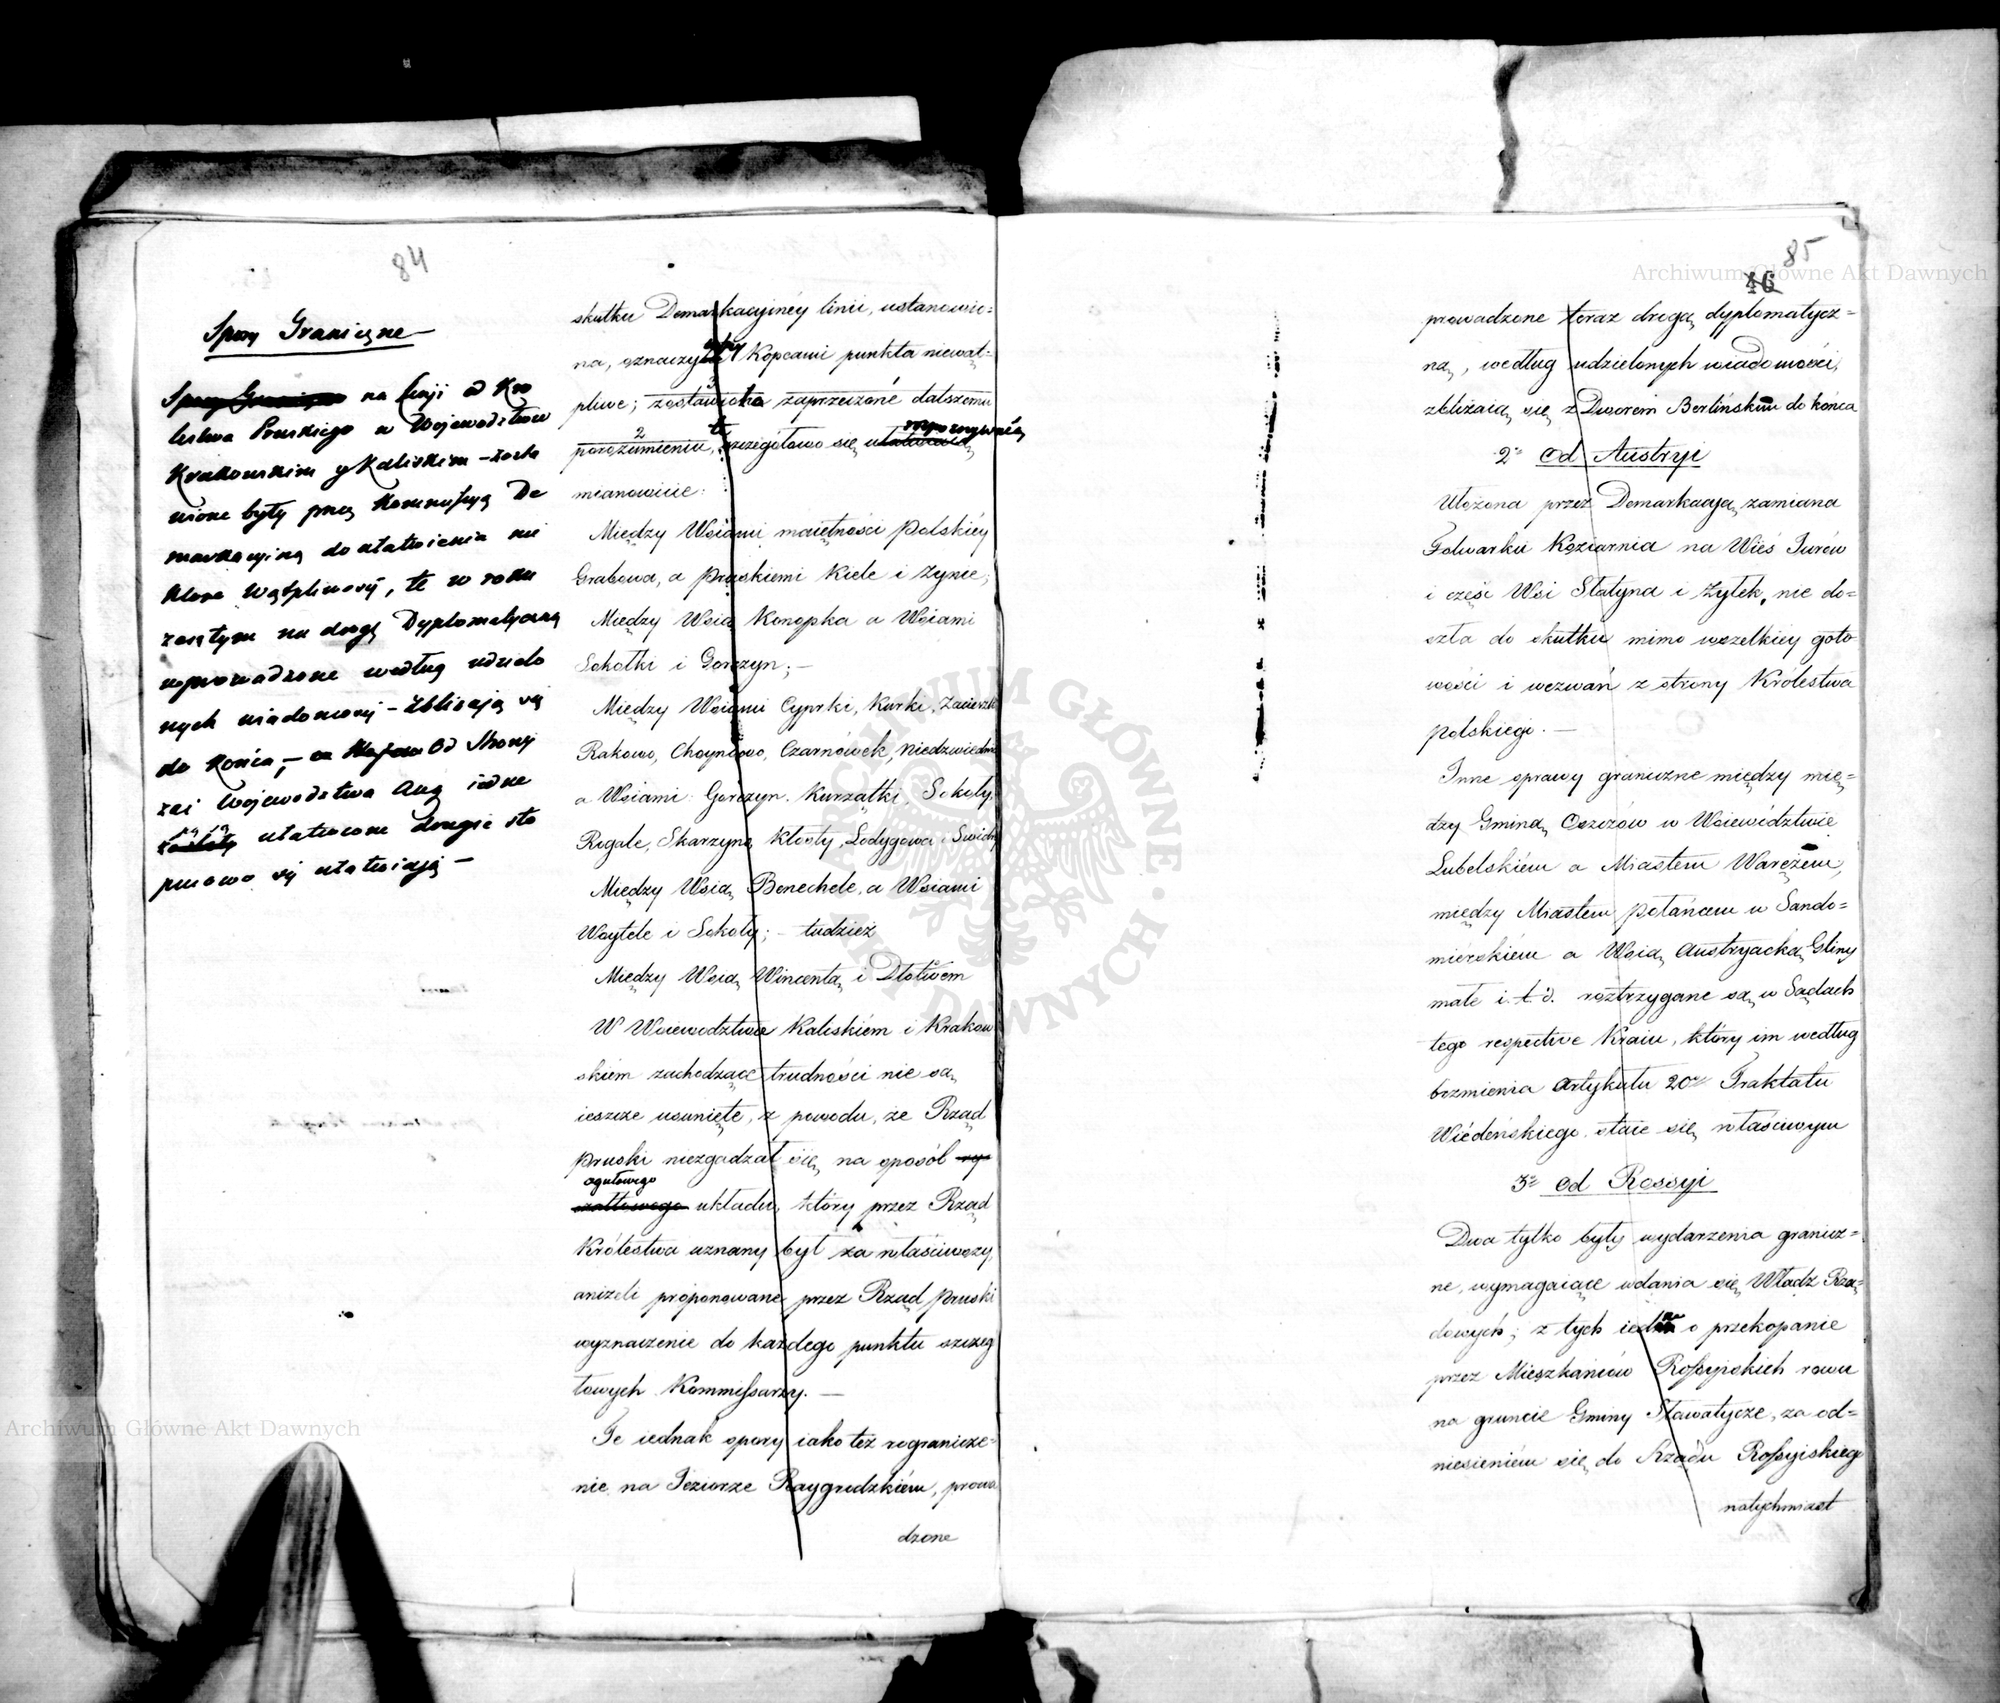 84
Spory Graniczne
Spory Graniczne na linji od Kró
lestwa Pruskiego w Wojewodztwie
Krakowskim y Kaliskim – zosta
wione były przez Kommissyą De
markacyiną do ułatwienia nie
które wątpliwości, te w roku
zeszłym na drogę Dyplomatyczną
wprowadzone według udzielo
nych wiadomości – zbliżają się
do końca, – Od strony
zaś Wojewodztwa Aug iedne
są ułatwione drugie sto
pniowo się ułatwiają –
skutku Demarkacyinéy linii, ustanowio=
na, oznaczyła Kopcami punkta niewąt=
pliwe; zostawiła zaprzeczóné dalszemu
porozumieniu, te szczegółowo się ułatwiaią
mianowicie:
Między Wsiami maiętności Polskiéy
Grabowa, a Pruskiemi Kiele i Zynie;
Między Wsią Konopka a Wsiami
Sokołki i Gorczyn; –
Między Wsiami Cyprki, Kurki, Zacierzki
Rakowo, Choynowo, Czarnówek, Niedzwiedna
a Wsiami: Gorczyn. Kurzątki, Sokoły,
Rogale, Skarzyna, Kłosły, Lodygowa i Swidry
Między Wsią Benechele, a Wsiami
Woytele i Sokoły; – tudzież
Między Wsią Wincentą i Dłotwem
W Woiewodztwie Kaliskiém i Krakow
skiem zachodzące trudności nie są
ieszcze usunięte, z powodu, że Rząd
Pruski niezgadzał się na sposób ry=
ogułowego
czałtowego układu, który przez Rząd
Królestwa uznany był za właściwszy,
aniżeli proponowane przez Rząd Pruski
wyznaczenie do każdego punktu szczeg
łowych Kommissarzy. –
Te iednak spory iako też rogranicze=
nie na Jeziorze Raygrodzkiém, prowa
dzone
85
46
prowadzone teraz drogą dyplomatycz=
ną, według udzielonych wiadomości,
zbliżaią się z Dworem Berlińskim do końca
2° Od Austryi
Ułożona przez Demarkacyą zamiana
Folwarku Koziarnia na Wieś Jurów
i części Wsi Statyna i Zytek, nie do=
szła do skutku mimo wszelkiéy goto
wości i wezwań z strony Królestwa
Polskiego. –
Inne sprawy graniczne między mię=
dzy Gminą Oszczów w Woiewództwie
Lubelskiém a Miastem Waręzem,
między Miastem Połańcem w Sando=
miérskiém a Wsią Austryacką Gliny
małe i. t. d. roztrzygane są w Sądach
tego respective Kraiu, który im według
brzmienia Artykułu 20go Traktatu
Wiédeńskiego staie się właściwym
3° Od Rossyi
Dwa tylko były wydarzenia granicz=
ne, wymagaiące wdania się Władz Rzą=
dowych; z tych iedno o przekopanie
przez Mieszkańców Rossyiskich rowu
na gruncie Gminy Sławatycze, za od=
niesieniém się do Rządu Rossyiskieg
natychmiast
Archiwum Główne Akt Dawnych
Archiwum Główne Akt Dawnych
ARCHIWUM GŁÓWNE AKT DAWNYCH